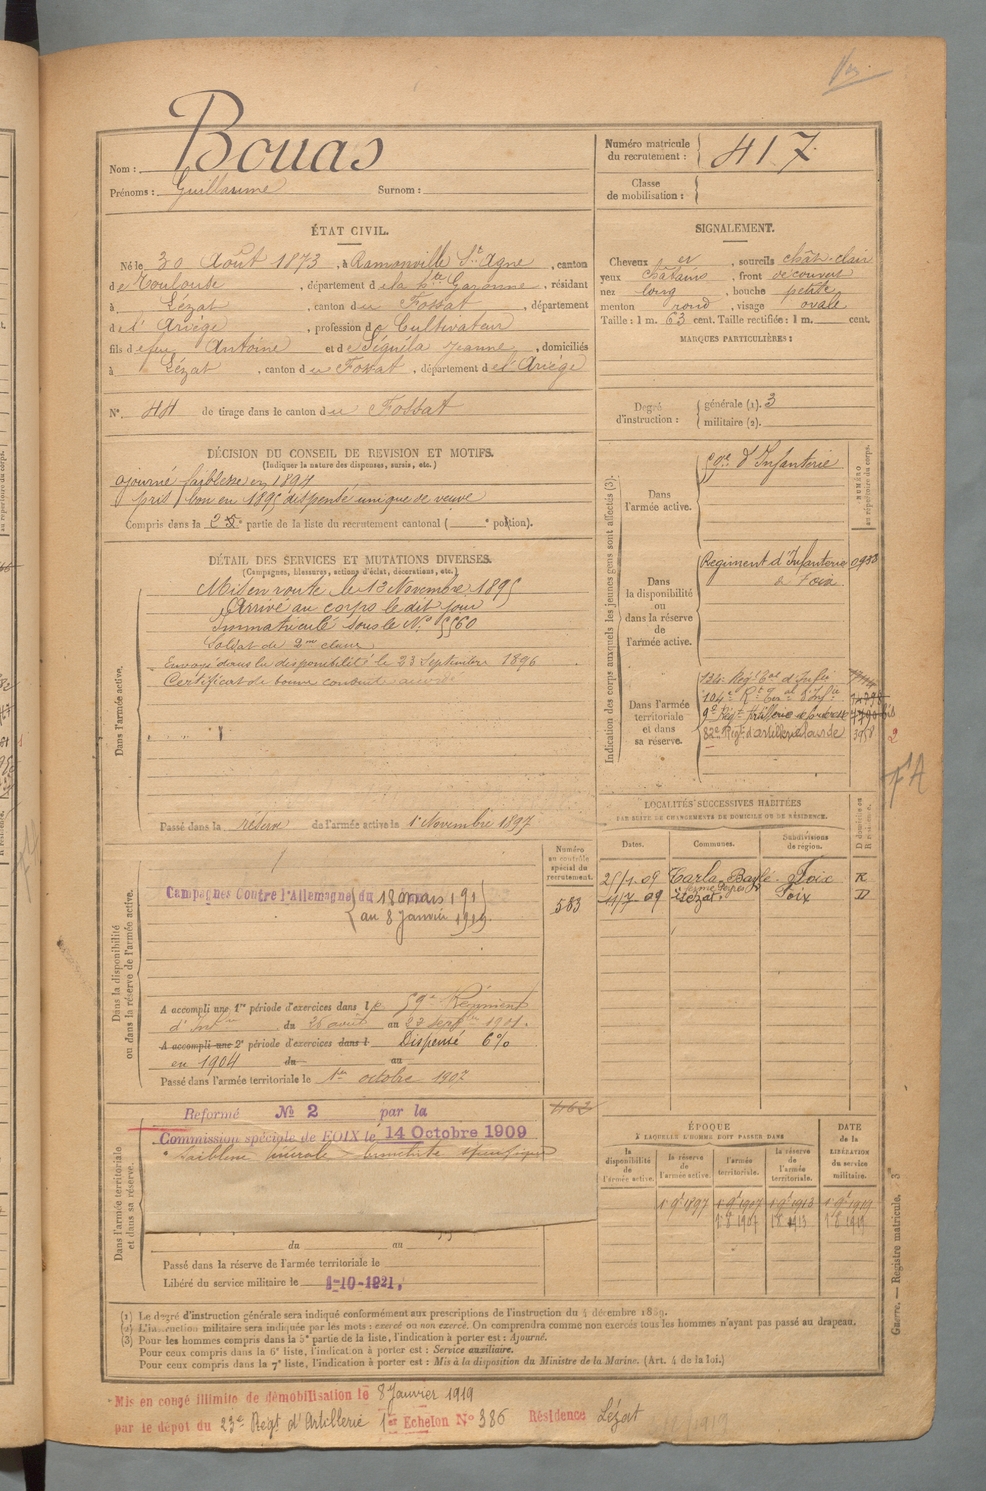 Bouas
Nom :
Prénoms : Guillaume Surnom :
Numéro matricule du recrutement : 417
Classe de mobilisation :
ÉTAT CIVIL.
Né le 30 Août 1873, à Ramonville St Agne, canton
de Toulouse, département de la Hte Garonne, résidant
à Lézat, canton du Fossat, département
de l'Ariège, profession de Cultivateur
fils de feu Antoine et de Séguéla Jeanne, domiciliés
à Lézat, canton du Fossat, département de l'Ariège
N° 44 de tirage dans le canton du Fossat
SIGNALEMENT.
Cheveux et, sourcils chât-clair
yeux châtains, front découvert
nez long, bouche petite
menton rond, visage ovale
Taille : 1 m. 63 cent. Taille rectifiée : 1 m. cent.
MARQUES PARTICULIÈRES :
Degré d'instruction : générale (1). 3
militaire (2).
DÉCISION DU CONSEIL DE REVISION ET MOTIFS.
(Indiquer la nature des dispenses, sursis, etc.)
ajourné faiblesse en 1894
pris bon en 1895 dispensé unique de veuve
Compris dans la 2e partie de la liste du recrutement cantonal ( e portion).
DÉTAIL DES SERVICES ET MUTATIONS DIVERSES.
(Campagnes, blessures, actions d'éclat, décorations, etc.)
Dans l'armée active.
Mis en route le 13 Novembre 1895
Arrivé au corps le dit jour
Immatriculé sous le N° 5560
Soldat de 2me classe
Envoyé dans la disponibilité le 23 Septembre 1896
Certificat de bonne conduite accordé
Passé dans la réserve de l'armée active le 1 Novembre 1897
Indication des corps auxquels les jeunes gens sont affectés (3).
NUMÉRO au répertoire du corps.
Dans l'armée active.
59e d'Infanterie
Dans la disponibilité ou dans la réserve de l'armée active.
Régiment d'Infanterie
de Foix
Dans l'armée territoriale et dans sa réserve.
82e Régt d'artillerie lourde
LOCALITÉS SUCCESSIVES HABITÉES
PAR SUITE DE CHANGEMENTS DE DOMICILE OU DE RÉSIDENCE.
Dates. Communes. Subdivisions de région. D domicile ou R résidence.
Carla-Bayle Foix R
11/7-09 Lézat Foix D
Numéro au contrôle spécial du recrutement.
583
Dans la disponibilité ou dans la réserve de l'armée active.
Campagnes Contre l'Allemagne du 18 mars 191
au 8 Janvier 1919.
A accompli une 1re période d'exercices dans le 59e Régiment
d'Infie du 26 août au 22 sept 1901.
A accompli une 2e période d'exercices dans l Dispensé 6%
en 1904 du au
Passé dans l'armée territoriale le 1er octobre 1907
Dans l'armée territoriale et dans sa réserve.
Réformé N° 2 par la
Commission spéciale de FOIX le 14 Octobre 1909
du au
Passé dans la réserve de l'armée territoriale le
Libéré du service militaire le 1-10-1921,
ÉPOQUE
À LAQUELLE L'HOMME DOIT PASSER DANS
la disponibilité de l'armée active.
la réserve de l'armée active.
l'armée territoriale.
la réserve de l'armée territoriale.
DATE de la LIBÉRATION du service militaire.
(1) Le degré d'instruction générale sera indiqué conformément aux prescriptions de l'instruction du 4 décembre 1889.
(2) L'instruction militaire sera indiquée par les mots : exercé ou non exercé. On comprendra comme non exercés tous les hommes n'ayant pas passé au drapeau.
(3) Pour les hommes compris dans la 5e partie de la liste, l'indication à porter est : Ajourné.
Pour ceux compris dans la 6e liste, l'indication à porter est : Service auxiliaire.
Pour ceux compris dans la 7e liste, l'indication à porter est : Mis à la disposition du Ministre de la Marine. (Art. 4 de la loi.)
Guerre. — Registre matricule. 3
Mis en congé illimité de démobilisation le 8 Janvier 1919
par le dépôt du 23e Régt d'Artillerie 1er Echelon N° 386 Résidence Lézat